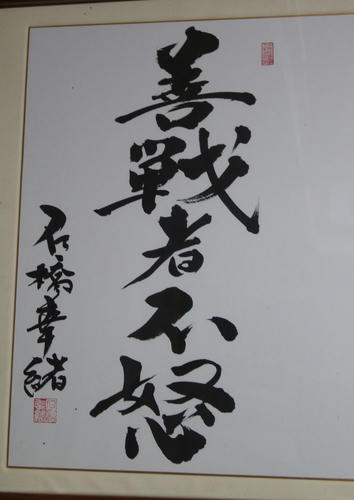 善戦者不怒
石橋幸緒